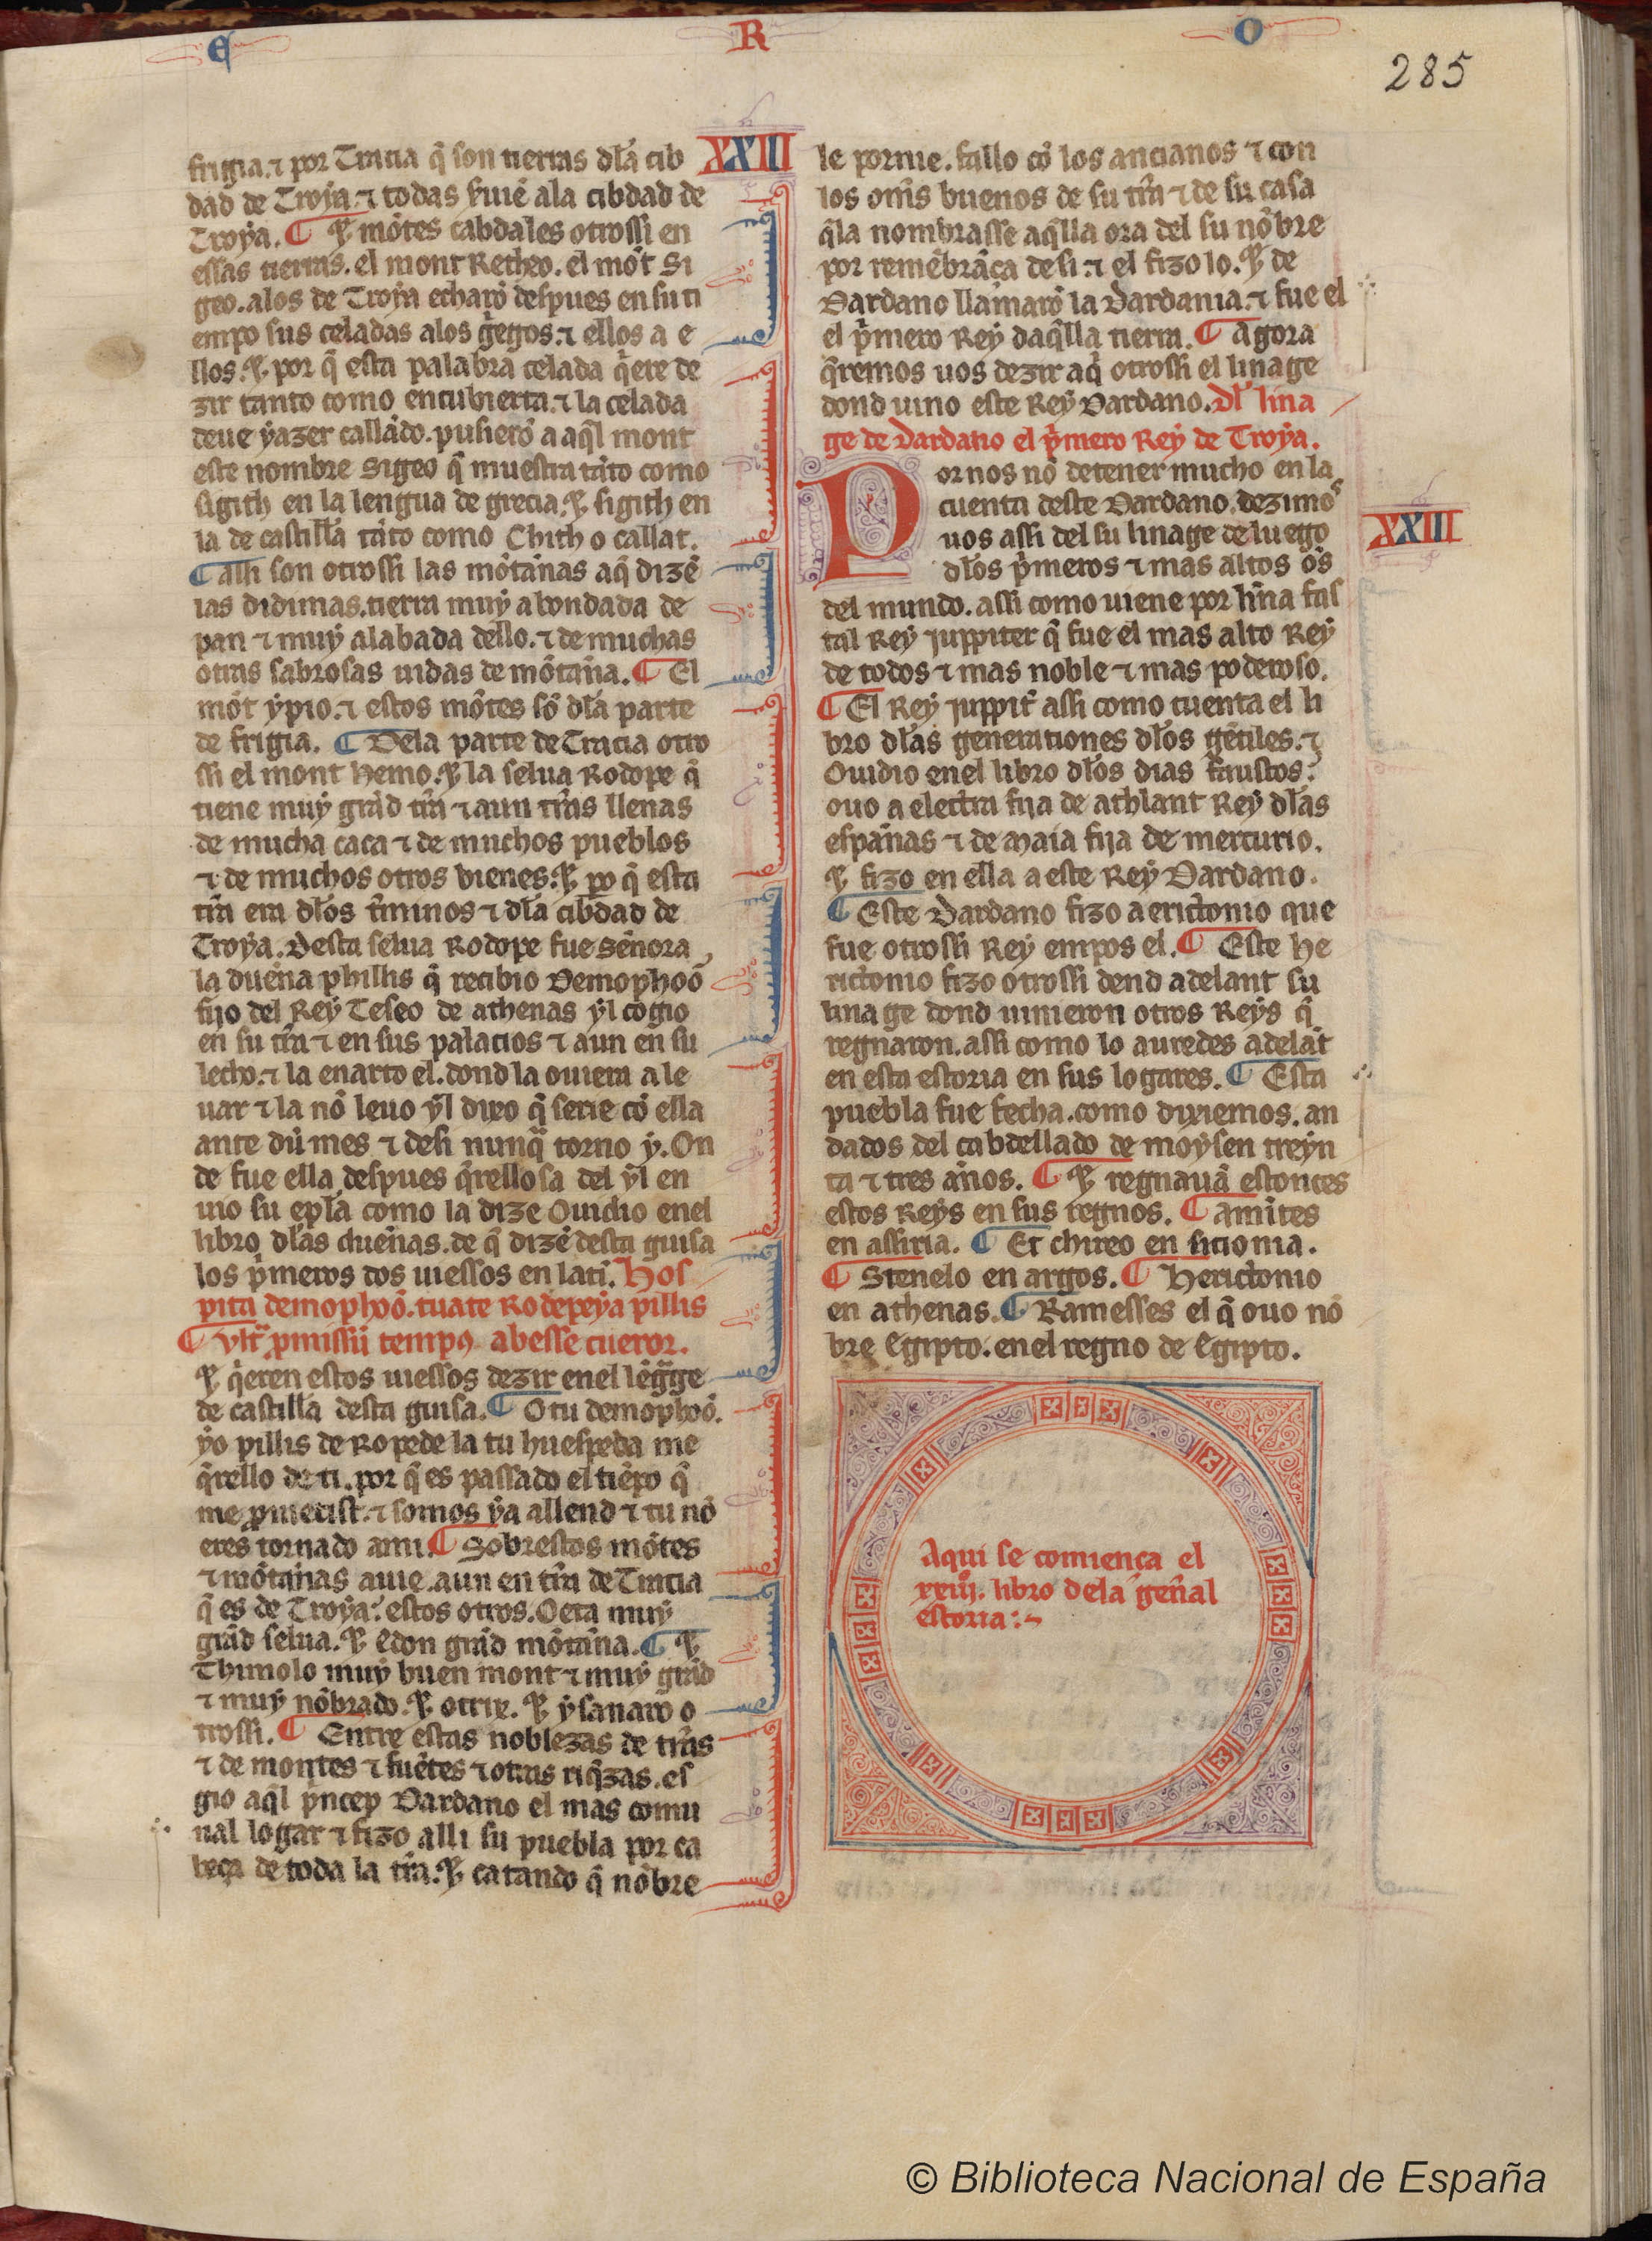 E R O
285
XXIII
frigia. ⁊ por Tracia q̃ son tierras dl̃a cib
dad de Troya. ⁊ todas siruiẽ ala cibdad de
Troya. ¶ E mõtes cabdales otrossi en
essas tierras. el mont Retheo. el mõt Si
geo. alos de Troya echarõ despues en su ti
empo sus celadas alos gr̃egos. ⁊ ellos a e
llos. E por q̃ esta palabra celada q̃ere de
zir tanto como encubierta. ⁊ la celada
deue yazer callãdo. pusierõ a aq̃l mont
este nombre Sigeo q̃ muestra tãto como
sigith en la lengua de grecia. E sigith en
la de castill̃a tãto como Chith o callar.
¶ assi son otrossi las mõtan̄as aq̃ dizẽ
las didimas. tierra muy abondada de
pan ⁊ muy alabada dello. ⁊ de muchas
otras sabrosas uidas de mõtan̄a. ¶ El
mõt ypio. ⁊ estos mõtes sõ dl̃a parte
de frigia. ¶ Dela parte de Tracia otro
ssi el mont hemo. E la selua Rodope q̃
tiene muy grãd tr̃ra ⁊ aun tr̃ras llenas
de mucha caca ⁊ de muchos pueblos
⁊ de muchos otros bienes. E po q̃ esta
tr̃ra era dl̃os t̃minos ⁊ dl̃a cibdad de
Troya. Desta selua Rodope fue sen̄ora
la duen̄a phillis q̃ recibio Demophoõ
fijo del Rey Teseo de athenas yl cogio
en su tr̃ra ⁊ en sus palacios ⁊ aun en su
lecho. ⁊ la enarto el. dond la ouiera a le
uar ⁊ la nõ leuo yl dixo q̃ serie cõ ella
ante dũ mes ⁊ desi nunq̃ torno y. On
de fue ella despues q̃rellosa del yl en
uio su epl̃a como la dize Ouidio enel
libro dl̃as duen̄as. de q̃ dizẽ desta guisa
los p̃meros dos uiessos en latĩ. Hos
pita demophoõ. tuate Rodepeya pillis
¶ Vlt̃ pmissũ tempꝯ abesse cueror.
E q̃eren estos uiessos dezir enel lẽg̃ge
de castill̃a desta guisa. ¶ O tu demophoõ.
yo pillis de Ropede la tu huespeda me
q̃rello de ti. por q̃ es passado el tiẽpo q̃
me ꝓmetist. ⁊ somos ya allend ⁊ tu nõ
eres tornado ami. ¶ Sobrestos mõtes
⁊ mõtan̄as auie. aun en tr̃ra de Tracia
q̃ es de Troya. estos otros. Oeta muy
grãd selua. E Edon grãd mõtan̄a. ¶ E
Thimolo muy buen mont ⁊ muy grãd
⁊ muy nõbrado. E otrix. E ysanaro o
trossi. ¶ Entre estas noblezas de tr̃ras
⁊ de montes ⁊ fuẽtes ⁊ otras riq̃zas. es
gio aq̃l p̃ncep Dardano el mas comu
nal logar ⁊ fizo alli su puebla por ca
beça de toda la tr̃ra. E catando q̃ nõbre
le pornie. fallo cõ los ancianos ⁊ con
los om̃s buenos de su tr̃ra ⁊ de su casa
q̃la nombrasse aq̃lla ora del su nõbre
por remẽbrãça de si. ⁊ el fizo lo. E de
Dardano llamarõ la Dardania. ⁊ fue el
el p̃mero Rey daq̃lla tierra. ¶ Agora
q̃remos uos dezir aq̃ otrossi el linage
dond uino este Rey Dardano. Dl̃ lina
ge de Dardano el p̃mero Rey de Troya.
Por nos nõ detener mucho en la
cuenta deste Dardano. dezimos
uos assi del su linage de luego
dl̃os p̃meros ⁊ mas altos om̃s
XXIII
del mundo. assi como uiene por lin̄a fas
tal Rey juppiter q̃ fue el mas alto Rey
de todos ⁊ mas noble ⁊ mas poderoso.
¶ El Rey juppit̃ assi como cuenta el li
bro dl̃as generationes dl̃os gẽtiles. ⁊
Ouidio enel libro dl̃os dias faustos.
ouo a electra fija de athlant Rey dl̃as
espan̄as ⁊ de maia fija de mercurio.
E fizo en ella a este Rey Dardano.
¶ Este Dardano fizo a erictonio que
fue otrossi Rey empos el. ¶ Este he
rictonio fizo otrossi dend adelant su
linage dond uinieron otros Reys q̃
regnaron. assi como lo auredes adelãt
en esta estoria en sus logares. ¶ Esta
puebla fue fecha. como dixiemos. an
dados del cabdellado de moysen treyn
ta ⁊ tres an̄os. ¶ E regnauã estonces
estos Reys en sus regnos. ¶ amites
en assiria. ¶ Et chireo en sicionia.
¶ Stenelo en argos. ¶ Herictonio
en athenas. ¶ Ramesses el q̃ ouo nõ
bre Egipto. enel regno de Egipto.
Aqui se comiença el
xxiiijo. libro dela gen̄al
estoria:~
© Biblioteca Nacional de España